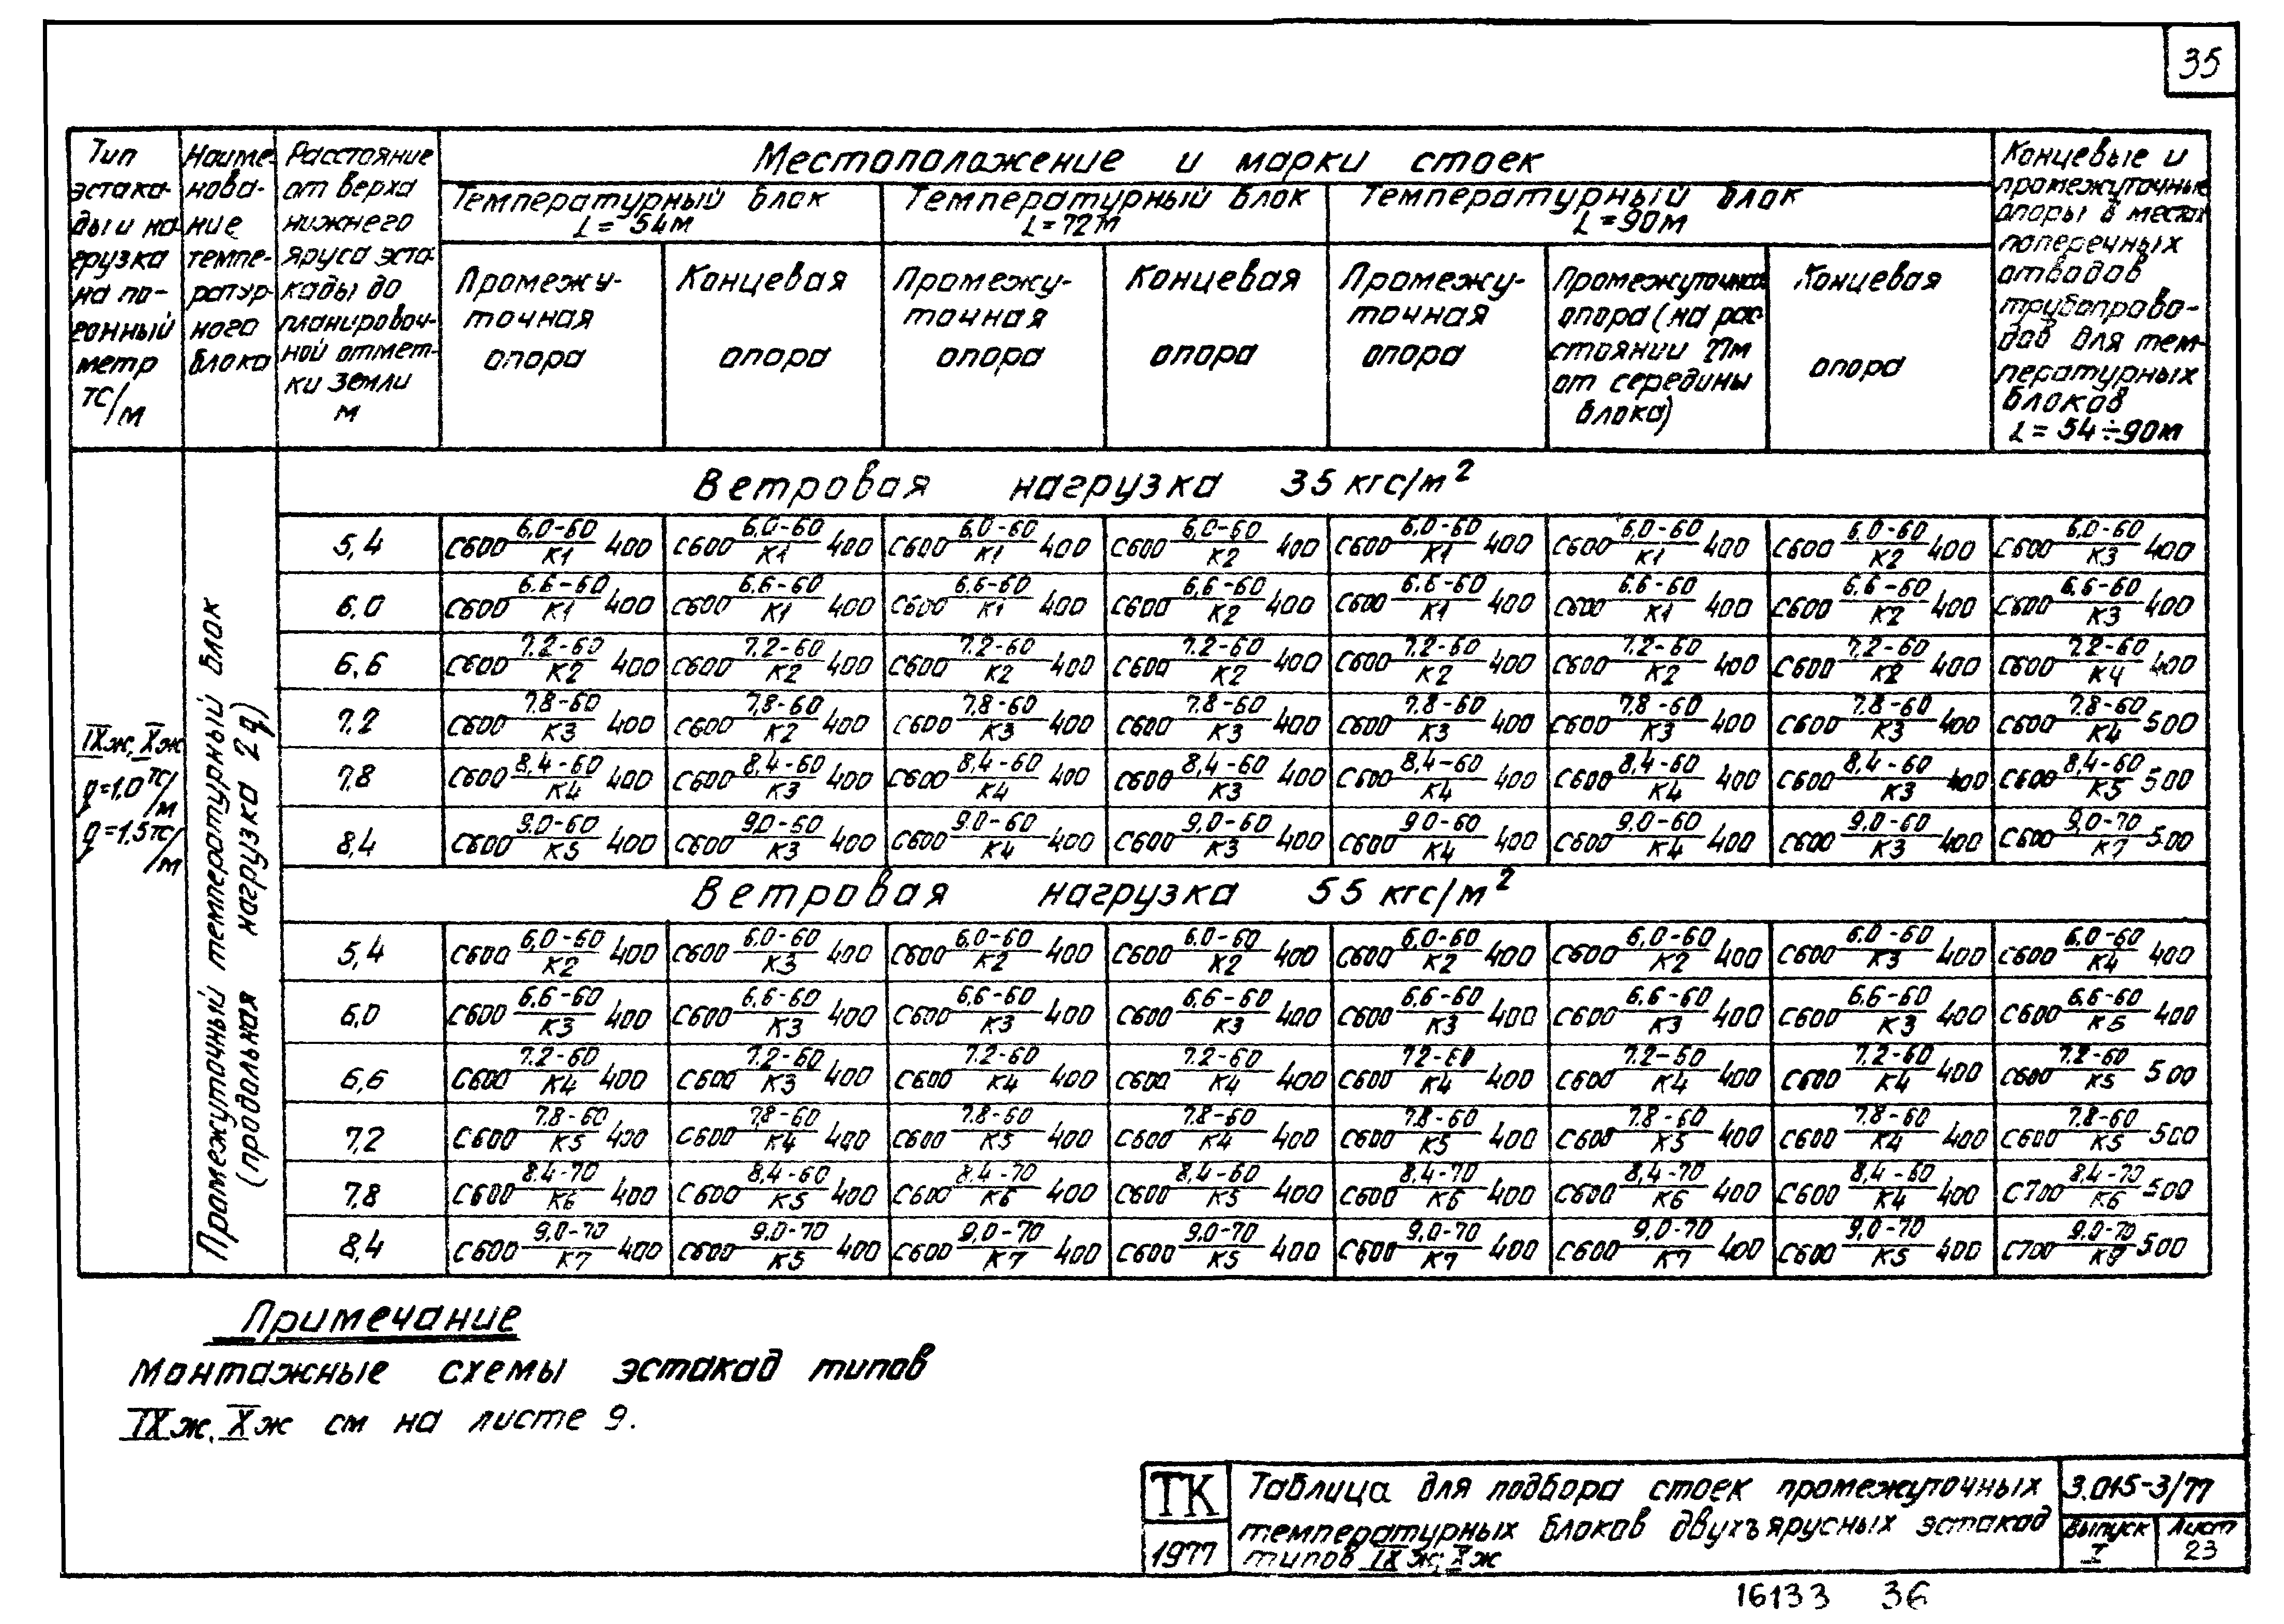 35
Тип эстакады и нагрузка на погонный метр ТС/м
Наименование температурного блока
Расстояние от верха нижнего яруса эстакады до планировочной отметки земли м
Местоположение и марки стоек
Концевые и промежуточные опоры в местах поперечных отводов трубопроводов для температурных блоков L=54÷90м
Температурный блок L=54м
Температурный блок L=72м
Температурный блок L=90м
Промежуточная опора
Концевая опора
Промежуточная опора
Концевая опора
Промежуточная опора
Промежуточная опора (на расстоянии 27м от середины блока)
Концевая опора
IXж, Xж
q=1,0 тс/м
q=1,5 тс/м
Промежуточный температурный блок
(продольная нагрузка 2q)
Ветровая нагрузка 35 кгс/м²
5,4 С600 6,0-60/К1 400 С600 6,0-60/К1 400 С600 6,0-60/К1 400 С600 6,0-60/К2 400 С600 6,0-60/К1 400 С600 6,0-60/К1 400 С600 6,0-60/К2 400 С600 6,0-60/К3 400
6,0 С600 6,6-60/К1 400 С600 6,6-60/К1 400 С600 6,6-60/К1 400 С600 6,6-60/К2 400 С600 6,6-60/К1 400 С600 6,6-60/К1 400 С600 6,6-60/К2 400 С600 6,6-60/К3 400
6,6 С600 7.2-60/К2 400 С600 7.2-60/К2 400 С600 7.2-60/К2 400 С600 7.2-60/К2 400 С600 7.2-60/К2 400 С600 7.2-60/К2 400 С600 7.2-60/К2 400 С600 7.2-60/К4 400
7,2 С600 7.8-60/К3 400 С600 7,8-60/К2 400 С600 7,8-60/К3 400 С600 7.8-60/К3 400 С600 7,8-60/К3 400 С600 7,8-60/К3 400 С600 7.8-60/К3 400 С600 7.8-60/К4 500
7,8 С600 8,4-60/К4 400 С600 8,4-60/К3 400 С600 8,4-60/К4 400 С600 8,4-60/К3 400 С600 8,4-60/К4 400 С600 8,4-60/К4 400 С600 8,4-60/К3 400 С600 8,4-60/К5 500
8,4 С600 9.0-60/К5 400 С600 9,0-60/К3 400 С600 9.0-60/К4 400 С600 9,0-60/К3 400 С600 9.0-60/К4 400 С600 9,0-60/К4 400 С600 9,0-60/К3 400 С600 9,0-70/К7 500
Ветровая нагрузка 55 кгс/м²
5,4 С600 6,0-60/К2 400 С600 6,0-60/К3 400 С600 6,0-60/К2 400 С600 6,0-60/К2 400 С600 6,0-60/К2 400 С600 6,0-60/К2 400 С600 6.0-60/К3 400 С600 6,0-60/К4 400
6,0 С600 6,6-60/К3 400 С600 6,6-60/К3 400 С600 6,6-60/К3 400 С600 6,6-60/К3 400 С600 6,6-60/К3 400 С600 6,6-60/К3 400 С600 6,6-60/К3 400 С600 6,6-60/К5 400
6,6 С600 7.2-60/К4 400 С600 7.2-60/К3 400 С600 7.2-60/К4 400 С600 7.2-60/К4 400 С600 7.2-60/К4 400 С600 7.2-60/К4 400 С600 7.2-60/К4 400 С600 7.2-60/К5 500
7,2 С600 7.8-60/К5 400 С600 7,8-60/К4 400 С600 7.8-60/К5 400 С600 7.8-60/К4 400 С600 7.8-60/К5 400 С600 7.8-60/К5 400 С600 7.8-60/К4 400 С600 7.8-60/К5 500
7,8 С600 8.4-70/К6 400 С600 8,4-60/К5 400 С600 8.4-70/К6 400 С600 8,4-60/К5 400 С600 8,4-70/К6 400 С600 8,4-70/К6 400 С600 8,4-60/К4 400 С700 8,4-70/К6 500
8,4 С600 9,0-70/К7 400 С600 9.0-70/К5 400 С600 9,0-70/К7 400 С600 9.0-70/К5 400 С600 9,0-70/К7 400 С600 9,0-70/К7 400 С600 9,0-70/К5 400 С700 9.0-70 500
Примечание
Монтажные схемы эстакад типов
IXж, Xж см на листе 9.
ТК
1977
Таблица для подбора стоек промежуточных
температурных блоков двухъярусных эстакад
типов IXж; Xж
3.015-3/77
Выпуск I
Лист 23
16133 36